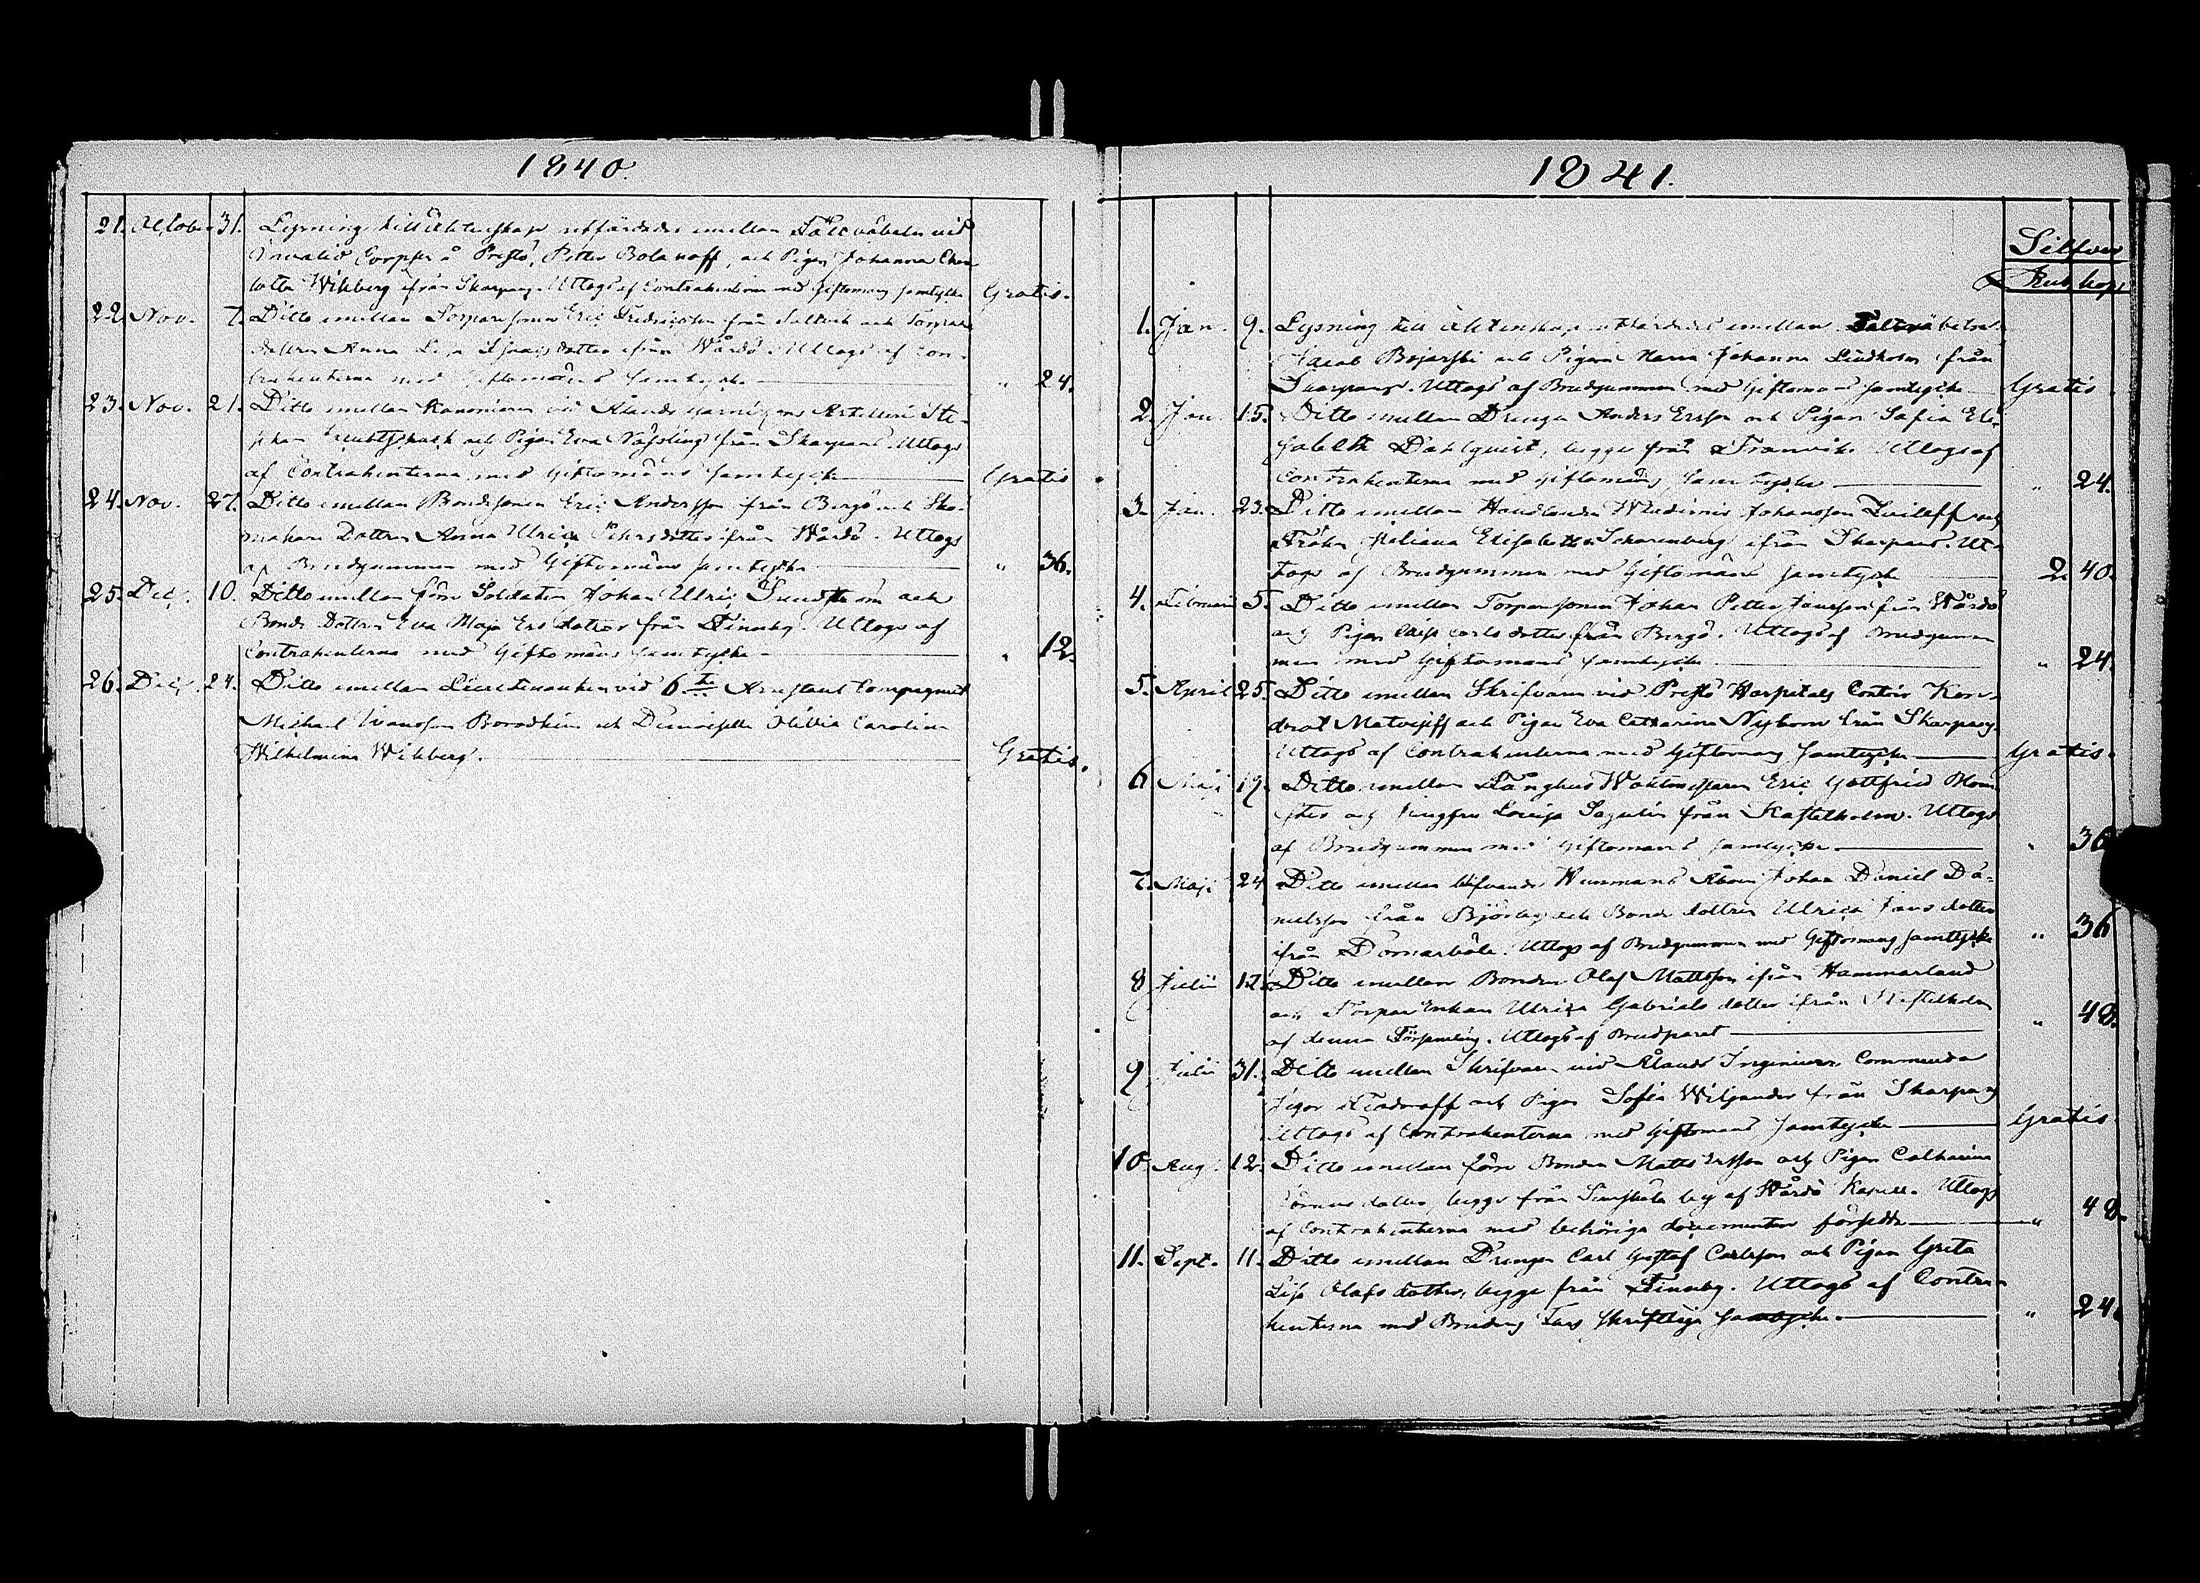 1840.
21. October 31. Lysning till äktenskap utfärdades emellan Fältväbeln vid
Invalid Corpsen å Prestö, Petter Bolanoff, och Pigan Johanna Char-
lotta Wikberg ifrån Skarpans. Uttogs af Contrahenterna med Giftomans samtycke Gratis.
22. Nov. 7. Ditto emellan Torparesonen Eric Fredricsson från Saltvik och Torpare
dottren Anna Lisa Isaacsdotter ifrån Wårdö. Uttogs af Con-
trahenterna med Giftomäns samtycke " 24.
23. Nov. 21. Ditto emellan Kanonieren vid Ålands garnizons Artilleri Ste-
phan och Pigan Eva Nössling från Skarpans. Uttogs
af Contrahenterna med Giftomäns samtycke Gratis
24. Nov. 27. Ditto emellan Bondesonen Eric Andersson från Bergö och Sko-
makare Dottren Anna Ulrica Pehrsdotter ifrån Wårdö. Uttogs
af Brudgummen med Giftomäns samtycke " 36.
25. Dec. 10. Ditto emellan förre Soldaten Johan Ulric Sundström och
Bonde Dottren Eva Maja Ersdotter från Finnby. Uttogs af
Contrahenterna med Giftomäns samtycke " 12.
26. Dec. 24. Ditto emellan Lieutenanten vid 6te Arrestant Compagniet
Michael Ivansson Borodkin och Demoiselle Olivia Carolina
Wilhelmina Wikberg. Gratis.
1841.
Silfver
Rub. kop.
1. Jan. 9. Lysning till äktenskap utfärdades emellan Fältväbeln
Jacob Bojarski och Pigan Maria Johanna Lindholm från
Skarpans. Uttogs af Brudgummen med Giftomans samtycke Gratis
2. Jan. 15. Ditto emellan Drengen Anders Ersson och Pigan Safia Eli-
sabeth Dahlqvist, begge från Tranvik. Uttogs af
Contrahenterna med Giftomäns samtycke " 24.
3. Jan. 23. Ditto emellan Handlanden Wladimir Johansson Zuileff och
Fröken Juliana Elisabeth Scharenberg ifrån Skarpans. Ut-
togs af Brudgummen med Giftomäns samtycke 2. 40.
4. Februari 5. Ditto emellan Torparesonen Johan Petter Jansson från Wårdö
och Pigan Caisa Carlsdotter från Bergö. Uttogs af Brudgum-
men med Giftomans samtycke " 24.
5. April 25. Ditto emellan Skrifvaren vid Prestö Hospitals Contoir Kon-
drat Matvejeff och Pigan Eva Catharina Nybom från Skarpans.
Uttogs af Contrahenterna med Giftomans samtycke Gratis.
6. Maji 19. Ditto emellan Fånghus Waktmästaren Eric Gottfried
och Jungfru Lovisa Sagulin från Kastelholm. Uttogs
af Brudgummen med Giftomans samtycke. " 36
7. Maji 24 Ditto emellan blifvande Hemmans Åboen Johan Daniel Da-
nielsson från Björby och Bonde dottren Ulrica Jansdotter
ifrån Domarböle. Uttogs af Brudgummen med Giftomans samtycke " 36
8 Julii 12. Ditto emellan Bonden Olof Mattsson ifrån Hammarland
och Torpare Enkan Ulrica Gabrielsdotter ifrån Kastelholm
af denna Församling. Uttogs af Brudparet " 48.
9. Julii 31. Ditto emellan Skrifvaren vid Ålands Ingenieurs Commendo
Jegor Fedoroff och Pigan Sofia Wiljander från Skarpans
Uttogs af Contrahenterna med Giftomans samtycke Gratis.
10. Aug. 12. Ditto emellan förre Bonden Matts Ersson och Pigan Catharina
dotter, begge från by af Wårdö Kapell. Uttogs
af Contrahenterna med behöriga documenter försedde " 48.
11. Sept. 11. Ditto emellan Drengen Carl Gustaf Carlsson och Pigan Greta
Lisa Olofsdotter, begge från Finnby. Uttogs af Contra-
henterna med Brudens Fars skriftliga samtycke. " 24.